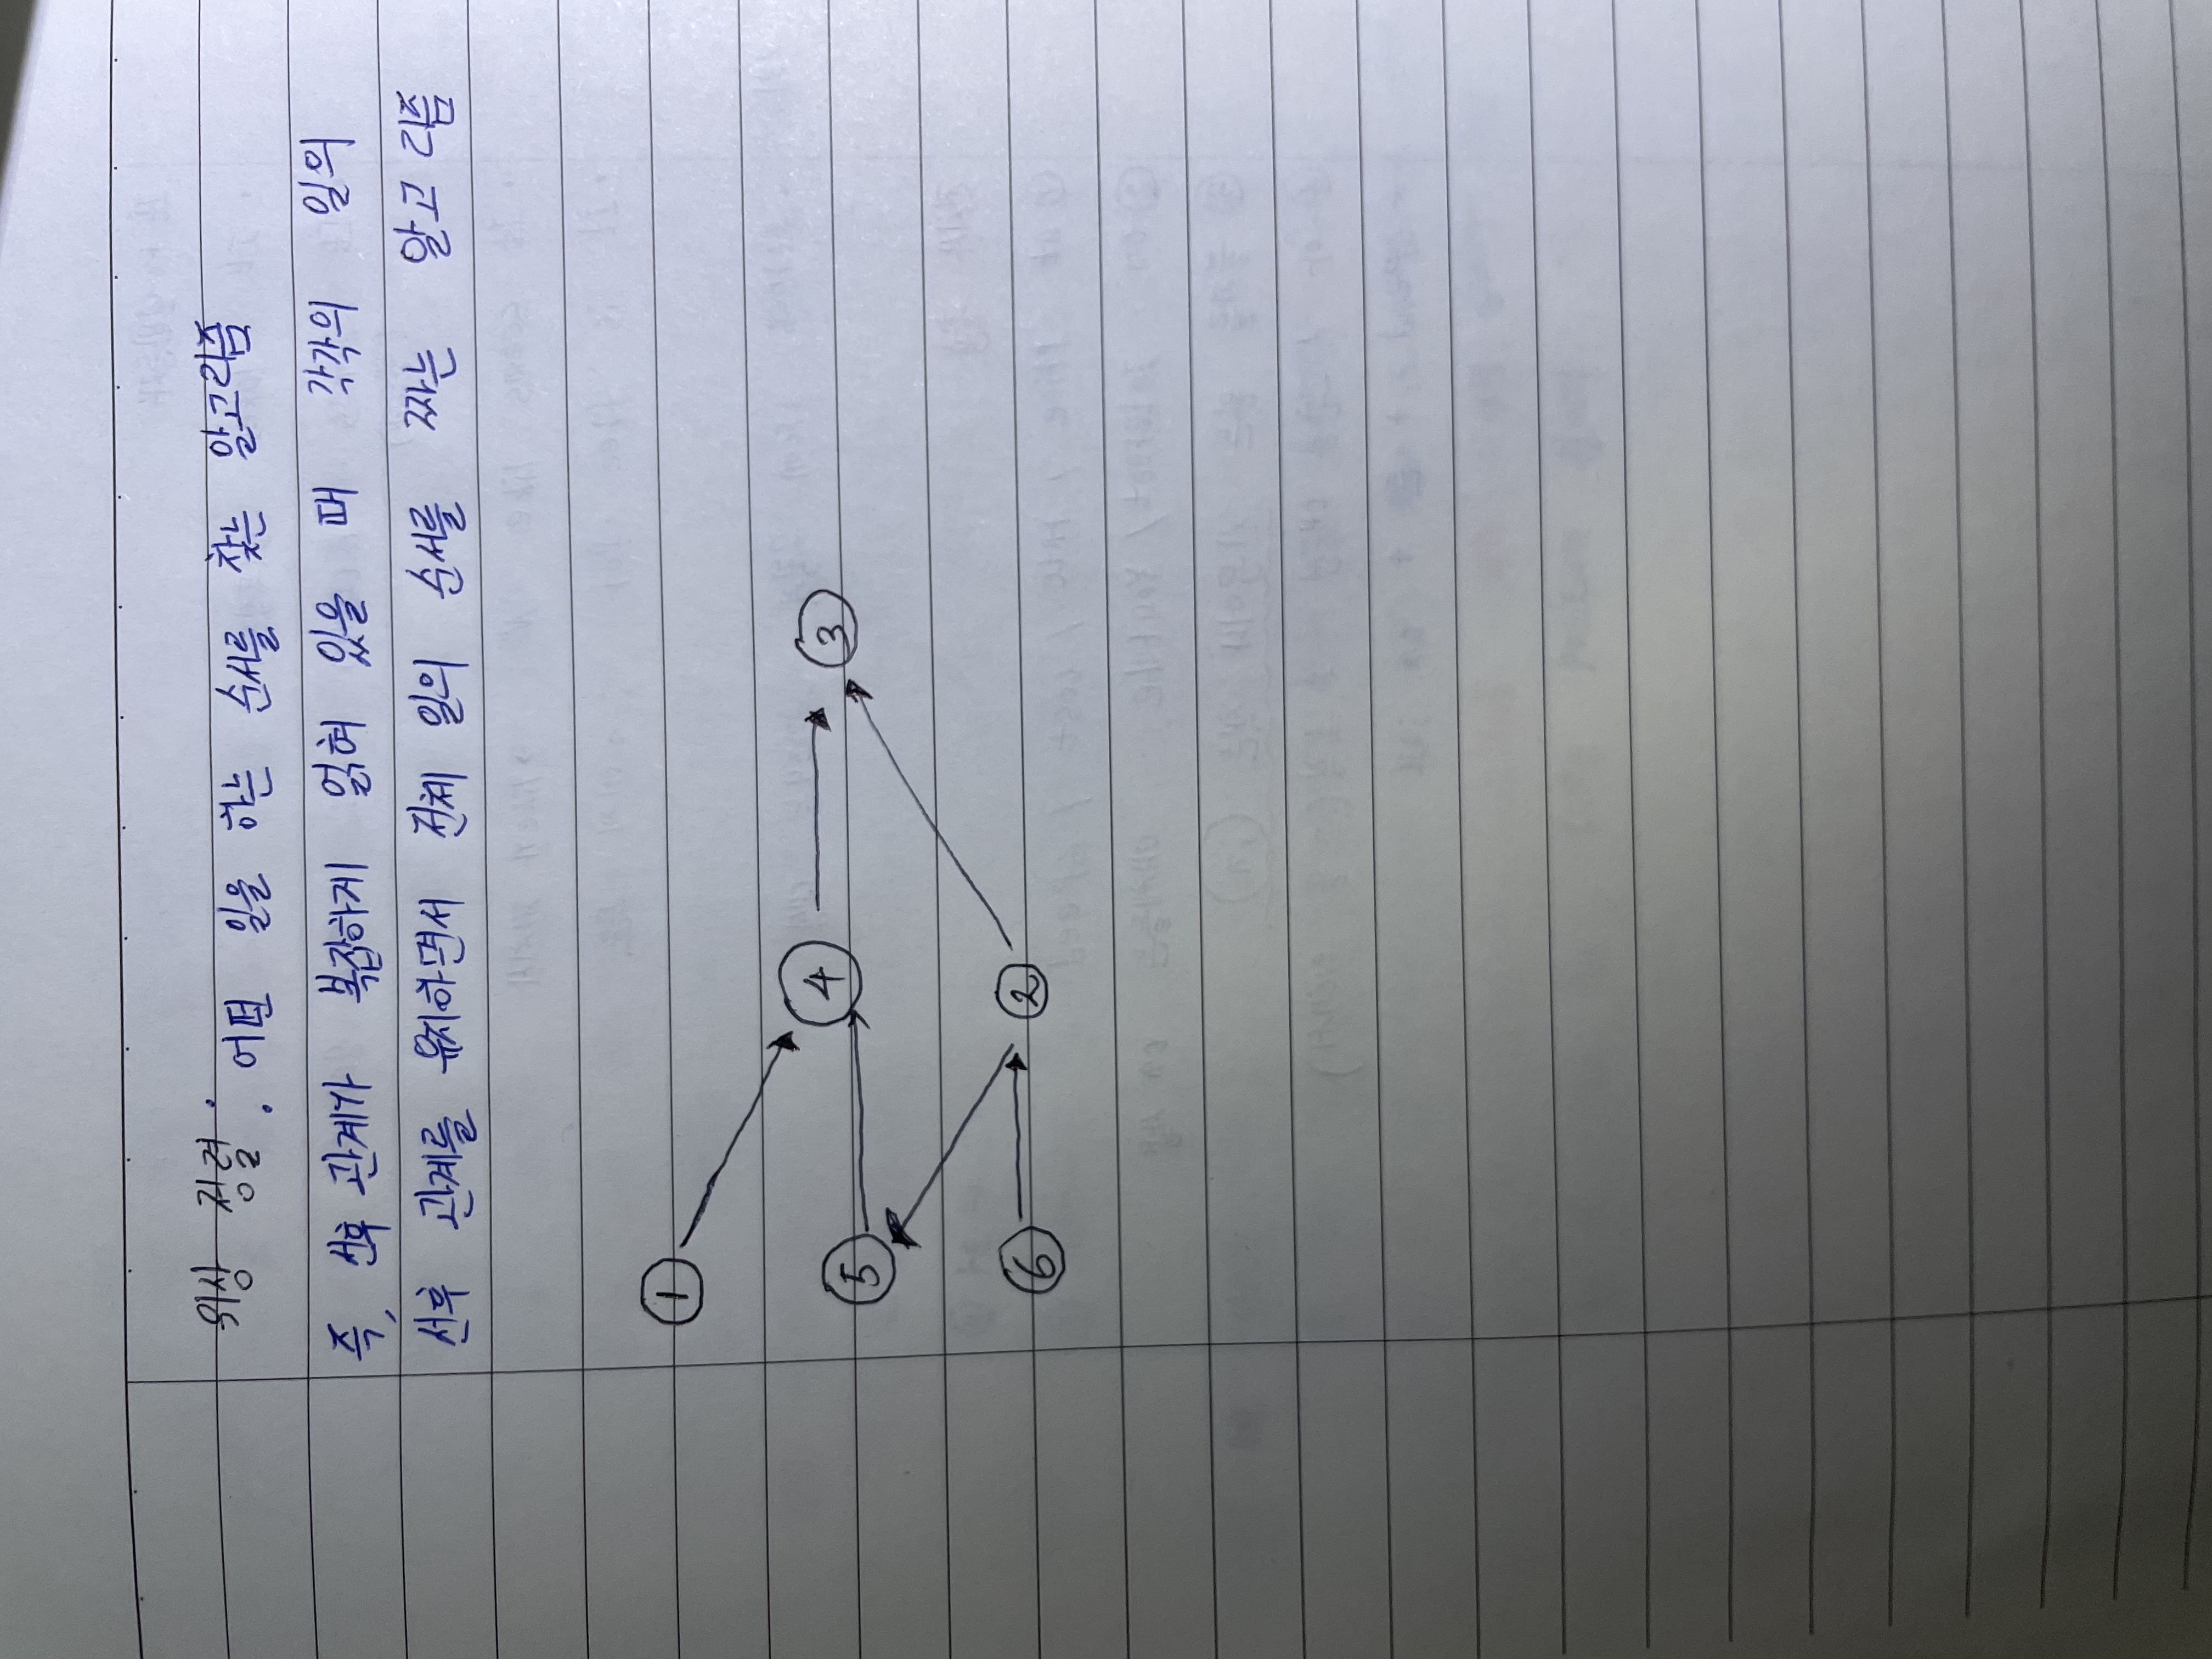 위상 정렬 : 어떤 일을 하는 순서를 찾는 알고리즘
즉, 선후 관계가 복잡하게 얽혀 있을 때 각각의 일의
선후 관계를 유지하면서 전체 일의 순서를 짜는 알고리즘
1
4 3
5
6 2